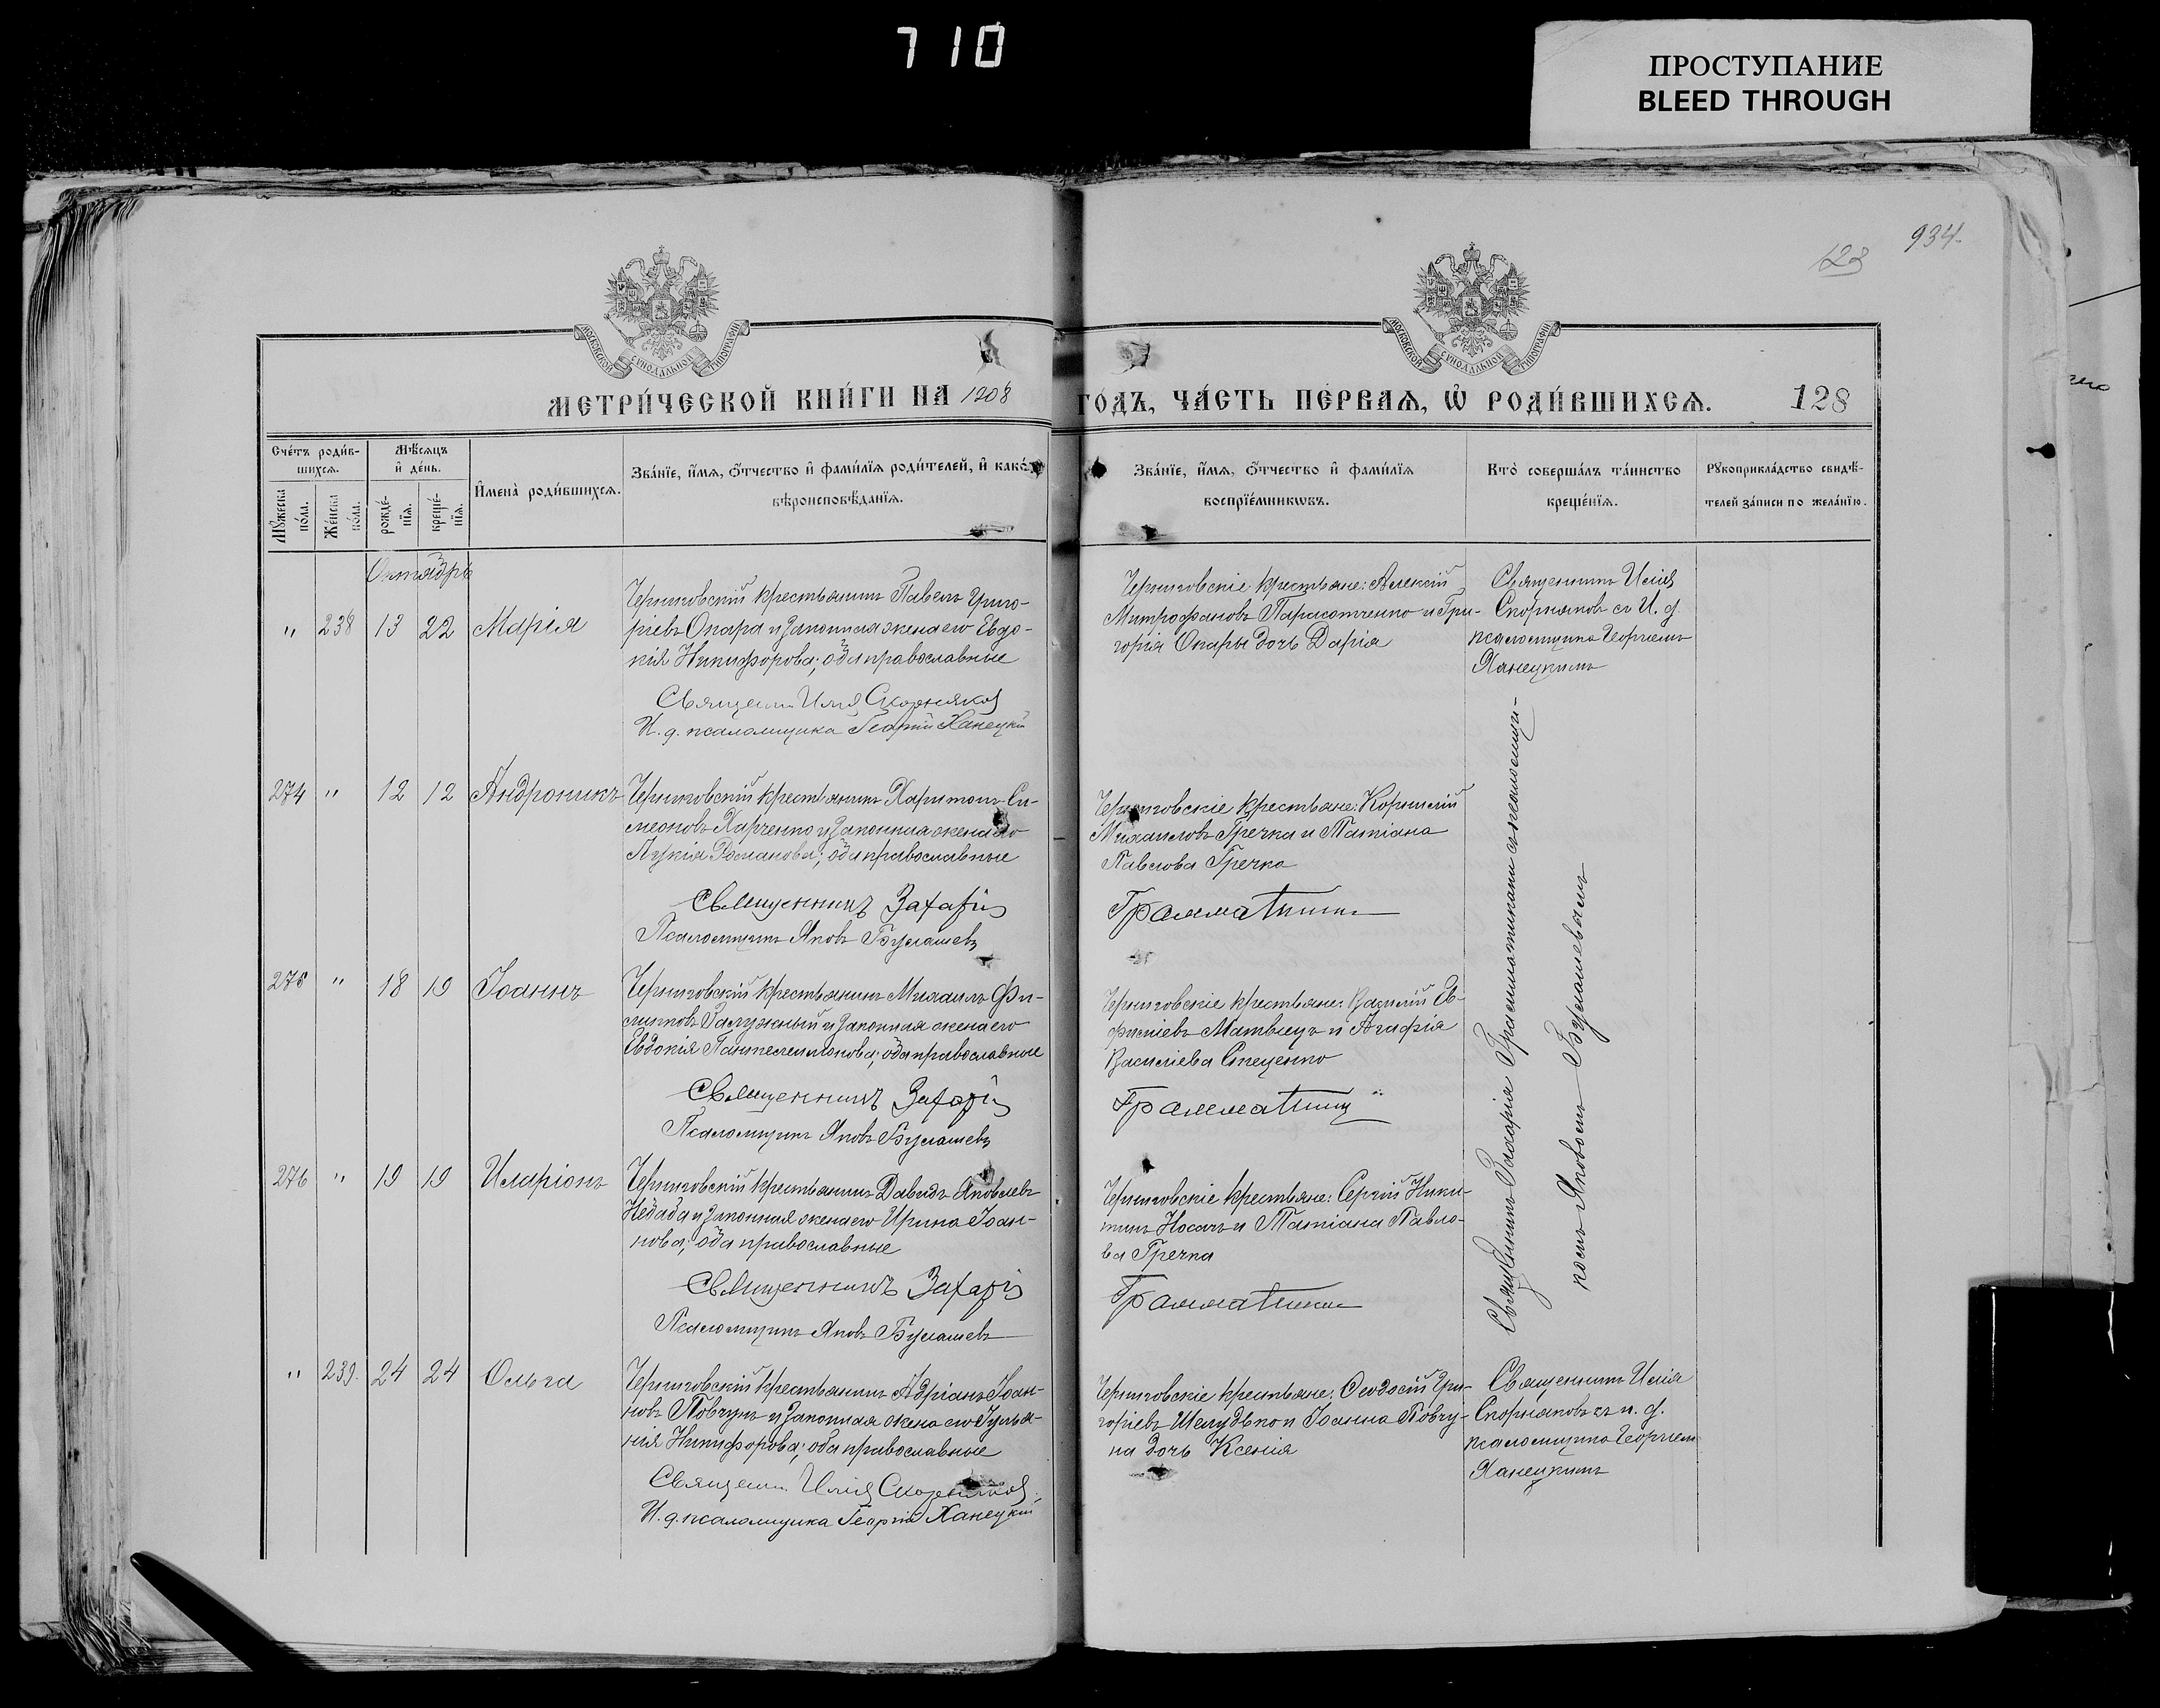 710
ПРОСТУПАНИЕ
BLEED THROUGH
934.
128
МОСКОВСКОЙ СѴНОДАЛЬНОЙ ТИПОГРАФІИ
МОСКОВСКОЙ СѴНОДАЛЬНОЙ ТИПОГРАФІИ
МЕТРИ́ЧЕСКОЙ КНИ́ГИ НА 1908 ГО́ДЪ, ЧА́СТЬ ПЕ́РВАЯ, Ѡ҆ РОДИ́ВШИХСЯ. 128
Сче́тъ роди́в-
шихся.
Мꙋ́жеска по́ла.
Же́нска по́ла.
Мѣ́сяцъ и҆ де́нь.
рожде́-
нїя.
креще́-
нїя.
И҆мена̀ роди́вшихся.
Зва́нїе, и҆́мя, ѻ҆́тчество и҆ фами́лїя роди́телей, и҆ како́го
вѣроисповѣ́данїя.
Зва́нїе, и҆́мя, ѻ҆́тчество и҆ фами́лїя
воспрїе́мникѡвъ.
Кто̀ соверша́лъ та́инство
креще́нїя.
Рꙋкоприкла́дство свидѣ́-
телей за́писи по жела́нїю.
Октябрь
" 238 13 22 Марія
Черниговскій крестьянинъ Павелъ Григо-
ріевъ Опара и законная жена его Евдо-
кія Никифорова; оба православные
Священн. Илія Скорняковъ
И. д. псаломщика Георгій Ханецкій
Черниговскіе крестьяне: Алексій
Митрофановъ Парасотченко и Гри-
горія Опары дочь Дарія
Священникъ Илія
Скорняковъ съ И. д.
псаломщика Георгіемъ
Ханецкимъ
274 " 12 12 Андроникъ
Черниговскій крестьянинъ Харитонъ Си-
меоновъ Харченко и законная жена его
Лукія Романова; оба православные
Священникъ Захарій Грамматикинъ
Псаломщикъ Яковъ Булашевъ
Черниговскіе крестьяне: Корнилій
Михаиловъ Гречка и Татіана
Павлова Гречка
Священникъ Захарія Грамматикинъ съ псаломщи-
комъ Яковомъ Булашевымъ
275 " 18 19 Іоаннъ
Черниговскій крестьянинъ Михаилъ Фи-
липповъ Залужный и законная жена его
Евдокія Пантелеимонова; оба православные
Священникъ Захарій Грамматикинъ
Псаломщикъ Яковъ Булашевъ
Черниговскіе крестьяне: Василій Ев-
фиміевъ Матвіецъ и Агафія
Василіева Стеценко
276 " 19 19 Иларіонъ
Черниговскій крестьянинъ Давидъ Яковлевъ
Небаба и законная жена его Ирина Іоан-
нова; оба православные
Священникъ Захарій Грамматикинъ
Псаломщикъ Яковъ Булашевъ
Черниговскіе крестьяне: Сергій Ники-
тинъ Носачъ и Татіана Павло-
ва Гречка
" 239. 24 24 Ольга
Черниговскій крестьянинъ Адріанъ Іоан-
новъ Повчунъ и законная жена его Іулья-
нія Никифорова; оба православные
Священн. Илія Скорняковъ
И. д. псаломщика Георгій Ханецкій
Черниговскіе крестьяне: Ѳеодосій Гри-
горіевъ Шелудько и Іоанна Повчу-
на дочь Ксенія
Священникъ Илія
Скорняковъ съ и. д.
псаломщика Георгіемъ
Ханецкимъ